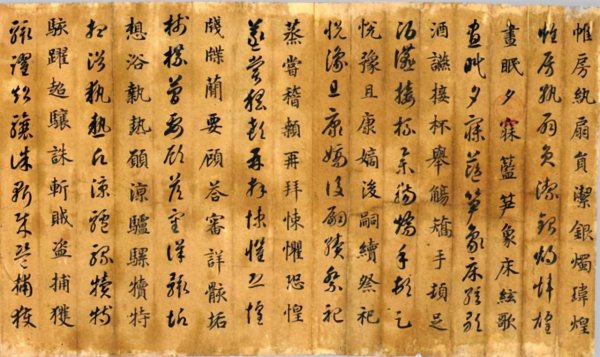 帷房紈扇員潔銀燭煒煌
帷房紈扇員潔銀燭煒煌
晝眠夕寐藍笋象床絃歌
晝眠夕寐藍笋象床絃歌
酒讌接杯舉觴矯手頓足
酒讌接杯舉觴矯手頓足
悅豫且康嫡後嗣續祭祀
悅豫且康嫡後嗣續祭祀
蒸嘗稽顙再拜悚懼恐惶
蒸嘗稽顙再拜悚懼恐惶
牋牒簡要顧答審詳骸垢
牋牒簡要顧答審詳骸垢
想浴執熱願涼驢騾犢特
想浴執熱願涼驢騾犢特
駭躍超驤誅斬賊盜捕獲
駭躍超驤誅斬賊盜捕獲